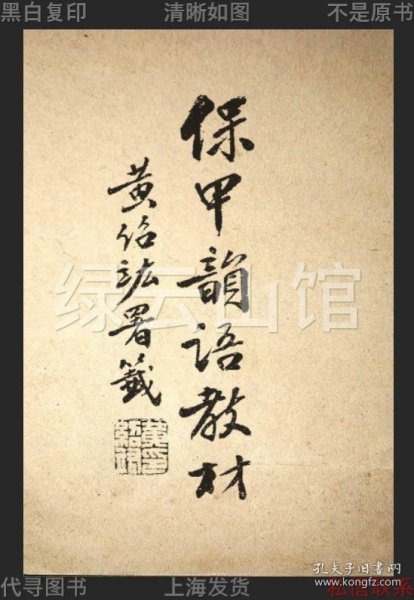 黑白复印 清晰如图 不是原书
保甲韻語教材
黃紹竑署籤
绿云山馆
孔夫子旧书网
www.kongfz.com
代寻图书 上海发货 私信联系